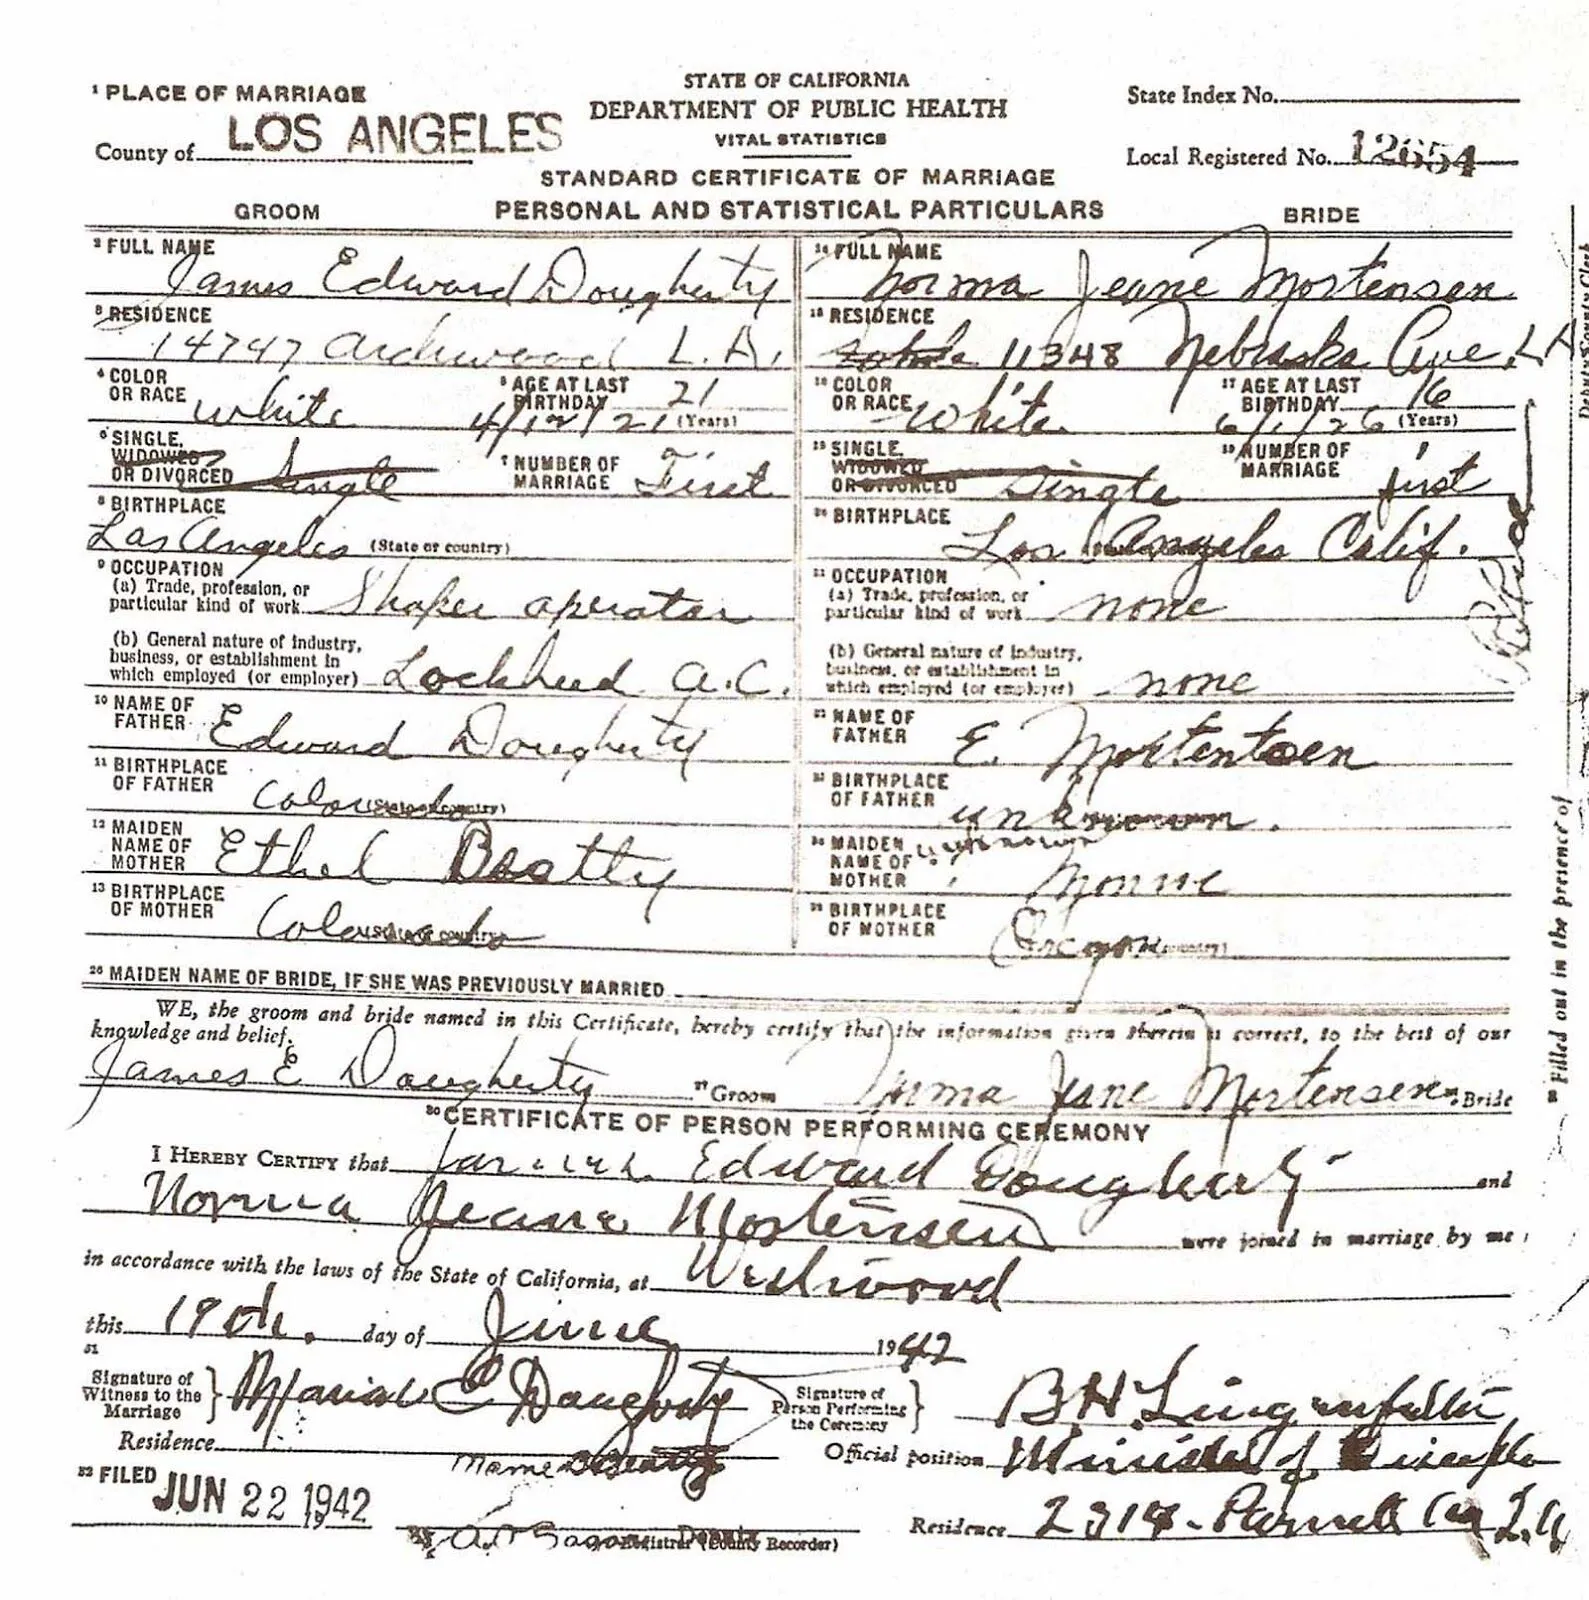 STATE OF CALIFORNIA
DEPARTMENT OF PUBLIC HEALTH
VITAL STATISTICS
1 PLACE OF MARRIAGE
County of LOS ANGELES
State Index No.
Local Registered No. 12654
STANDARD CERTIFICATE OF MARRIAGE
GROOM PERSONAL AND STATISTICAL PARTICULARS BRIDE
2 FULL NAME James Edward Dougherty
3 RESIDENCE 14747 Archwood L.A.
4 COLOR OR RACE White
5 AGE AT LAST BIRTHDAY 21 (Years) 4/12/21
6 SINGLE, WIDOWED OR DIVORCED Single
7 NUMBER OF MARRIAGE First
8 BIRTHPLACE Los Angeles (State or country)
9 OCCUPATION
(a) Trade, profession, or
particular kind of work Shaper operator
(b) General nature of industry,
business, or establishment in
which employed (or employer) Lockheed A.C.
10 NAME OF FATHER Edward Dougherty
11 BIRTHPLACE OF FATHER Colorado (State or country)
12 MAIDEN NAME OF MOTHER Ethel Beatty
13 BIRTHPLACE OF MOTHER Colorado (State or country)
14 FULL NAME Norma Jeane Mortensen
15 RESIDENCE 11348 Nebraska Ave. LA
16 COLOR OR RACE White
17 AGE AT LAST BIRTHDAY 16 (Years) 6/1/26
18 SINGLE, WIDOWED OR DIVORCED Single
19 NUMBER OF MARRIAGE first
20 BIRTHPLACE Los Angeles Calif.
21 OCCUPATION
(a) Trade, profession, or
particular kind of work none
(b) General nature of industry,
business, or establishment in
which employed (or employer) none
22 NAME OF FATHER E. Mortensen
23 BIRTHPLACE OF FATHER unknown.
24 MAIDEN NAME OF MOTHER Monroe
25 BIRTHPLACE OF MOTHER Oregon
26 MAIDEN NAME OF BRIDE, IF SHE WAS PREVIOUSLY MARRIED
WE, the groom and bride named in this Certificate, hereby certify that the information given therein is correct, to the best of our
knowledge and belief.
James E Dougherty Groom Norma Jeane Mortensen Bride
30 CERTIFICATE OF PERSON PERFORMING CEREMONY
I HEREBY CERTIFY that James Edward Dougherty and
Norma Jeane Mortensen were joined in marriage by me
in accordance with the laws of the State of California, at Westwood
this 19th. day of June 1942
31 Signature of Witness to the Marriage Marion C Dougherty
Residence
Signature of Person Performing the Ceremony B H Lingenfelter
Official position Minister of
Residence
32 FILED JUN 22 1942
Mame B Beatty
Registrar (County Recorder)
Filled out in the presence of
Deputy County Clerk